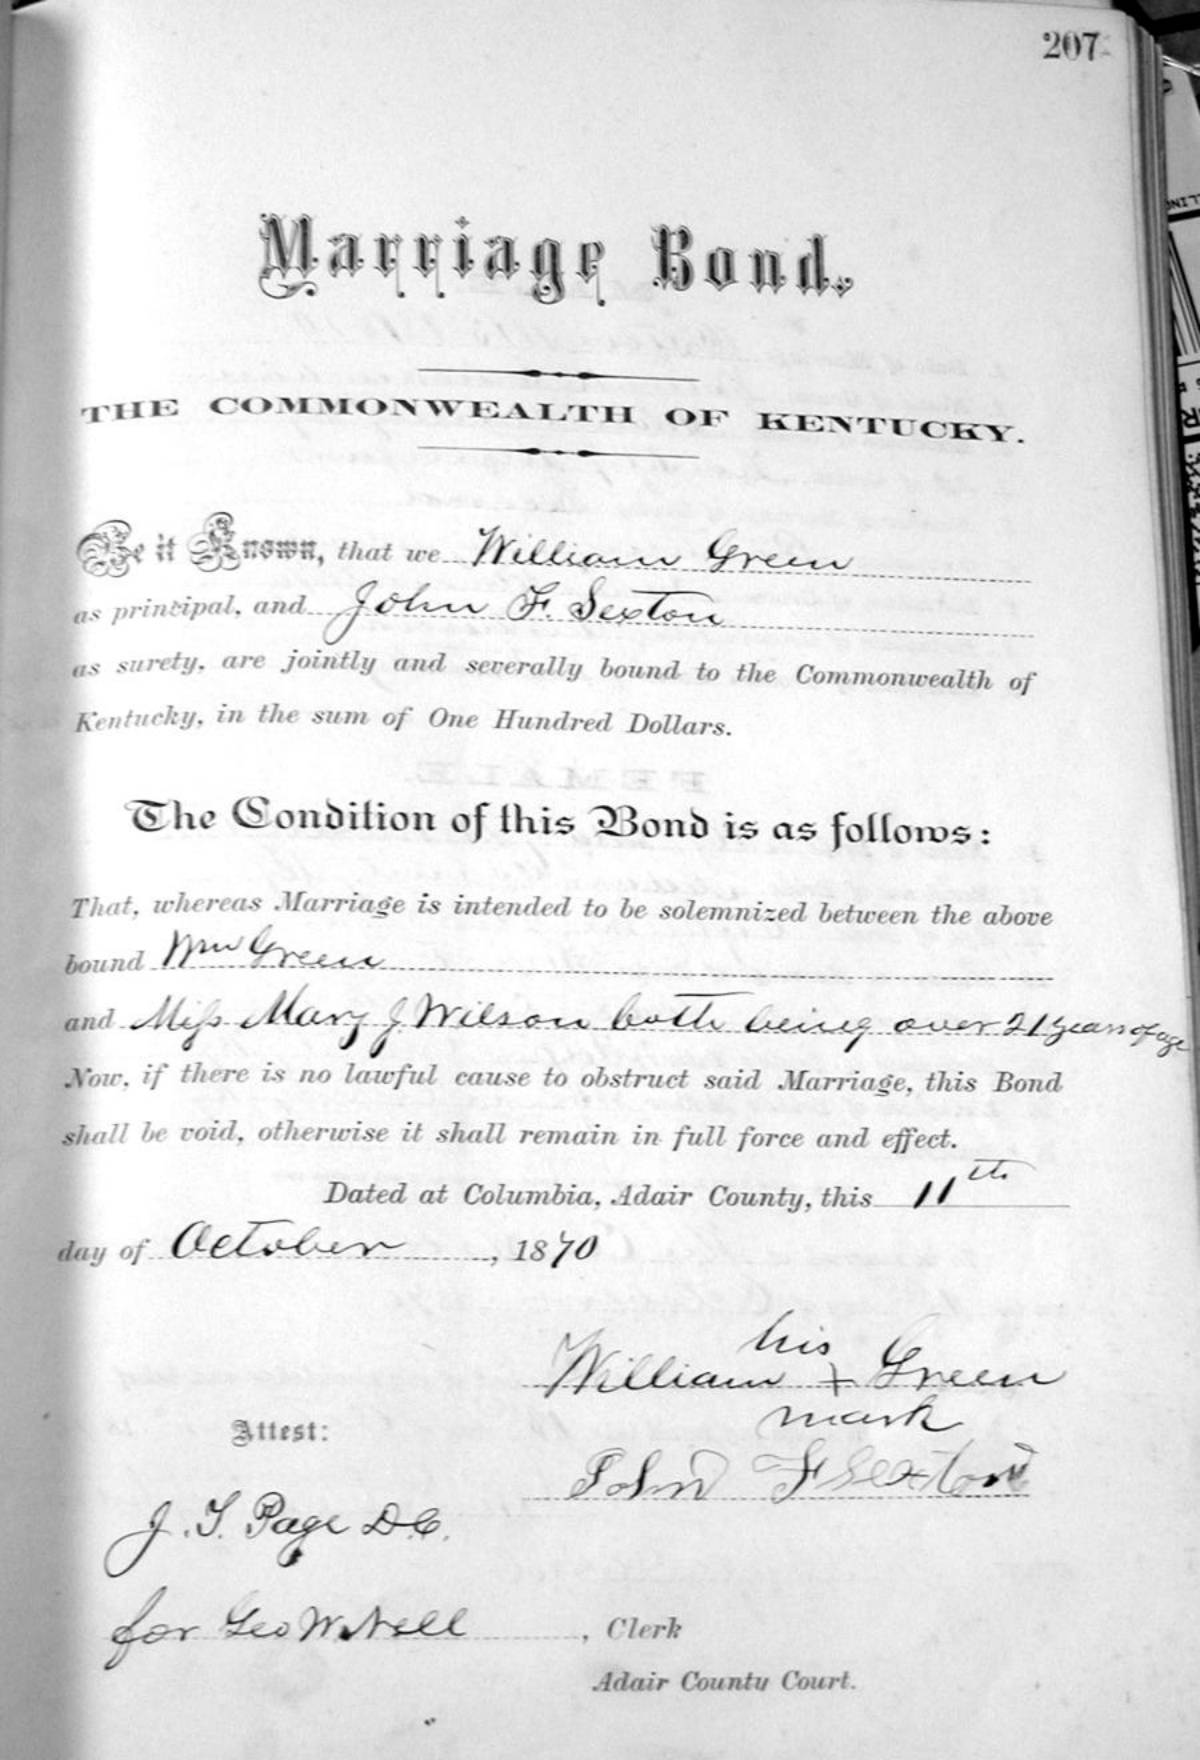 207
Marriage Bond.
THE COMMONWEALTH OF KENTUCKY.
Be it Known, that we William Green
as principal, and John F. Sexton
as surety, are jointly and severally bound to the Commonwealth of
Kentucky, in the sum of One Hundred Dollars.
The Condition of this Bond is as follows:
That, whereas Marriage is intended to be solemnized between the above
bound Wm Green
and Miss Mary J Wilson both being over 21 years of age
Now, if there is no lawful cause to obstruct said Marriage, this Bond
shall be void, otherwise it shall remain in full force and effect.
Dated at Columbia, Adair County, this 11th
day of October, 1870
his
William + Green
mark
Attest:
John F Sexton
J. T. Page D.C.
for Geo W. Nell, Clerk
Adair County Court.